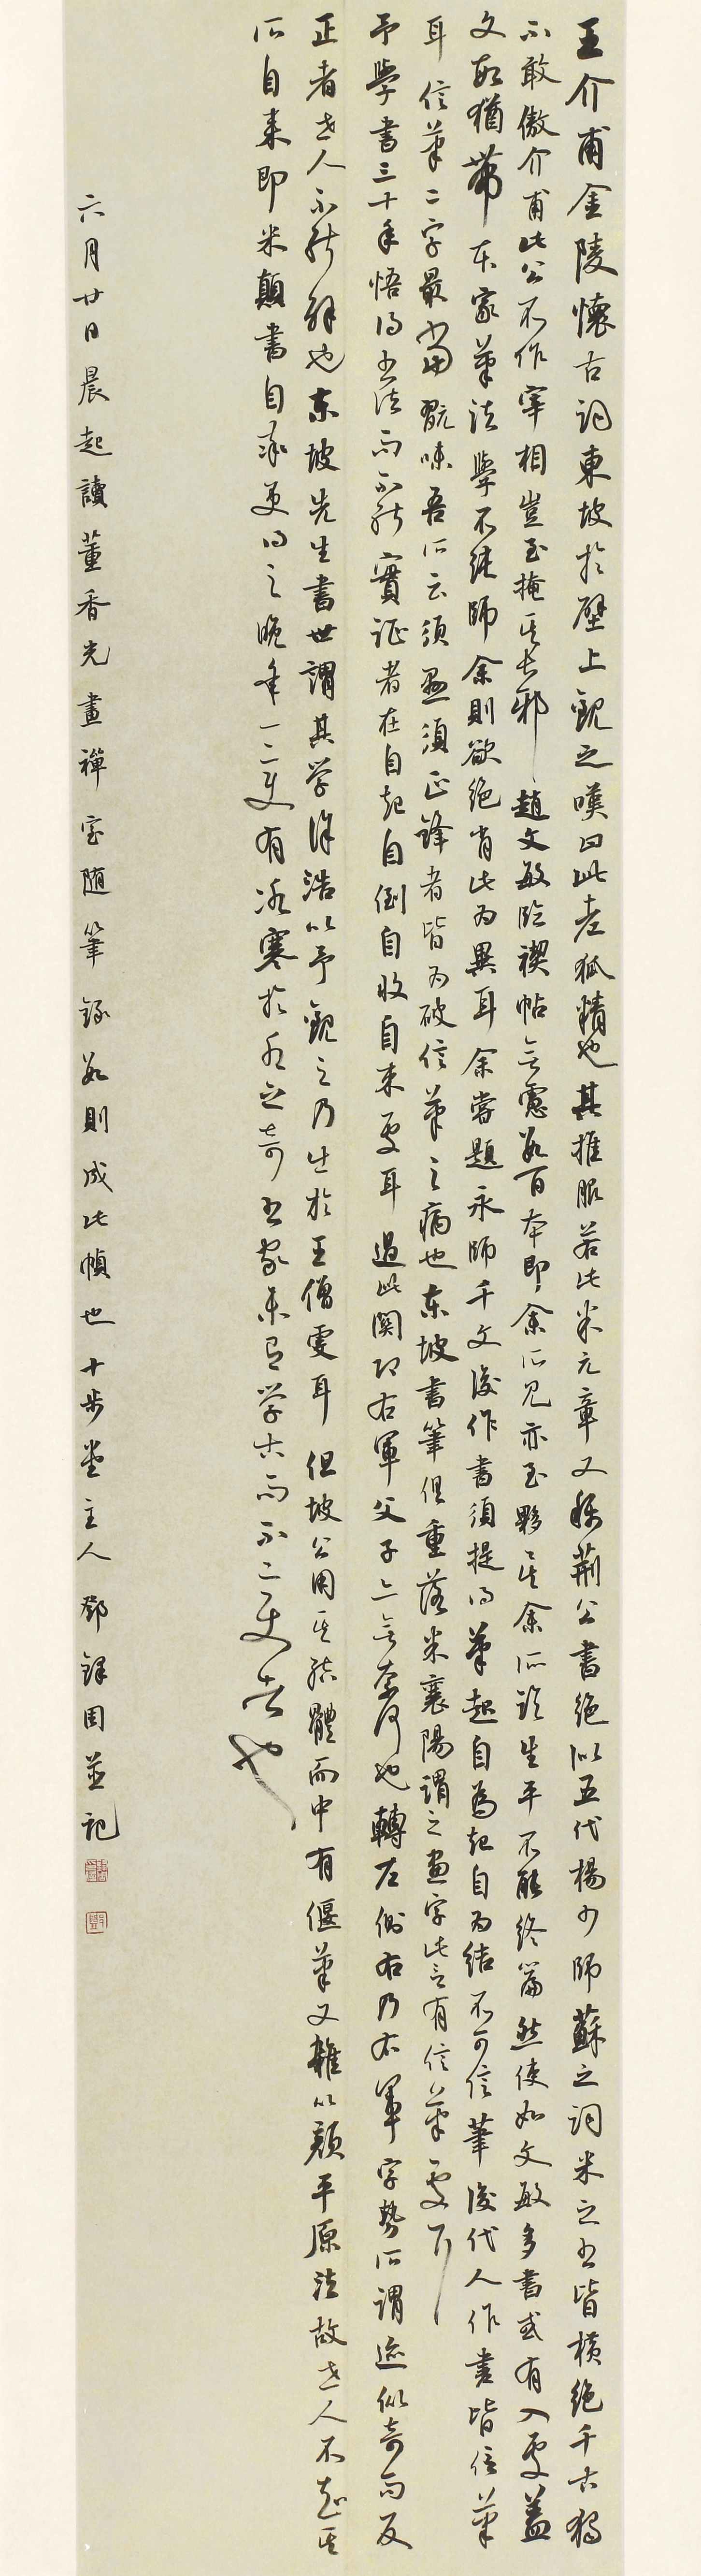 王介甫金陵懷古詞東坡於壁上觀之嘆曰此老狐精也其推服若此米元章又稱荊公書絕似五代楊少師蘇之詞米之書皆橫絕千古獨
不敢傲介甫此公不作宰相豈至掩其長邪趙文敏臨禊帖無慮數百本即余所見亦至夥矣余所臨生平不能終篇然使如文敏多書或有入處蓋
文敏猶帶本家筆法學不純師余則欲絕肖此為異耳余嘗題永師千文後作書須提得筆起自為起自為結不可信筆後代人作書皆信筆
耳信筆二字最當翫味吾所云須懸須正鋒者皆為破信筆之病也東坡書筆俱重落米襄陽謂之畫字此言有信筆處耳
予學書三十年悟得書法而不能實證者在自起自倒自收自束處耳過此關即右軍父子亦無奈何也轉左側右乃右軍字勢所謂迹似奇而反
正者世人不能解也東坡先生書世謂其學徐浩以予觀之乃出於王僧虔耳但坡公用其結體而中有偃筆又雜以顏平原法故世人不知其
所自來即米顛書自率更得之晚年一一變有冰寒於水之奇書家未有學古而不一變者也
六月廿日晨起讀董香光畫禪室隨筆錄數則成此幀也十步堂主人鄧鐸周並記